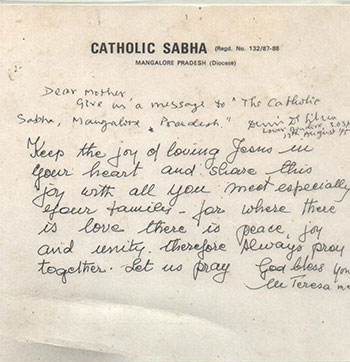 CATHOLIC SABHA (Regd. No. 132/87-88
MANGALORE PRADESH (Diocese)
Dear Mother
Give us a message to "The Catholic
Sabha, Mangalore Pradesh."
Keep the joy of loving Jesus in
your heart and share this
joy with all you meet especially
your family - for where there
is love there is peace, joy
and unity. therefore always pray
together. Let us pray God bless you
M Teresa